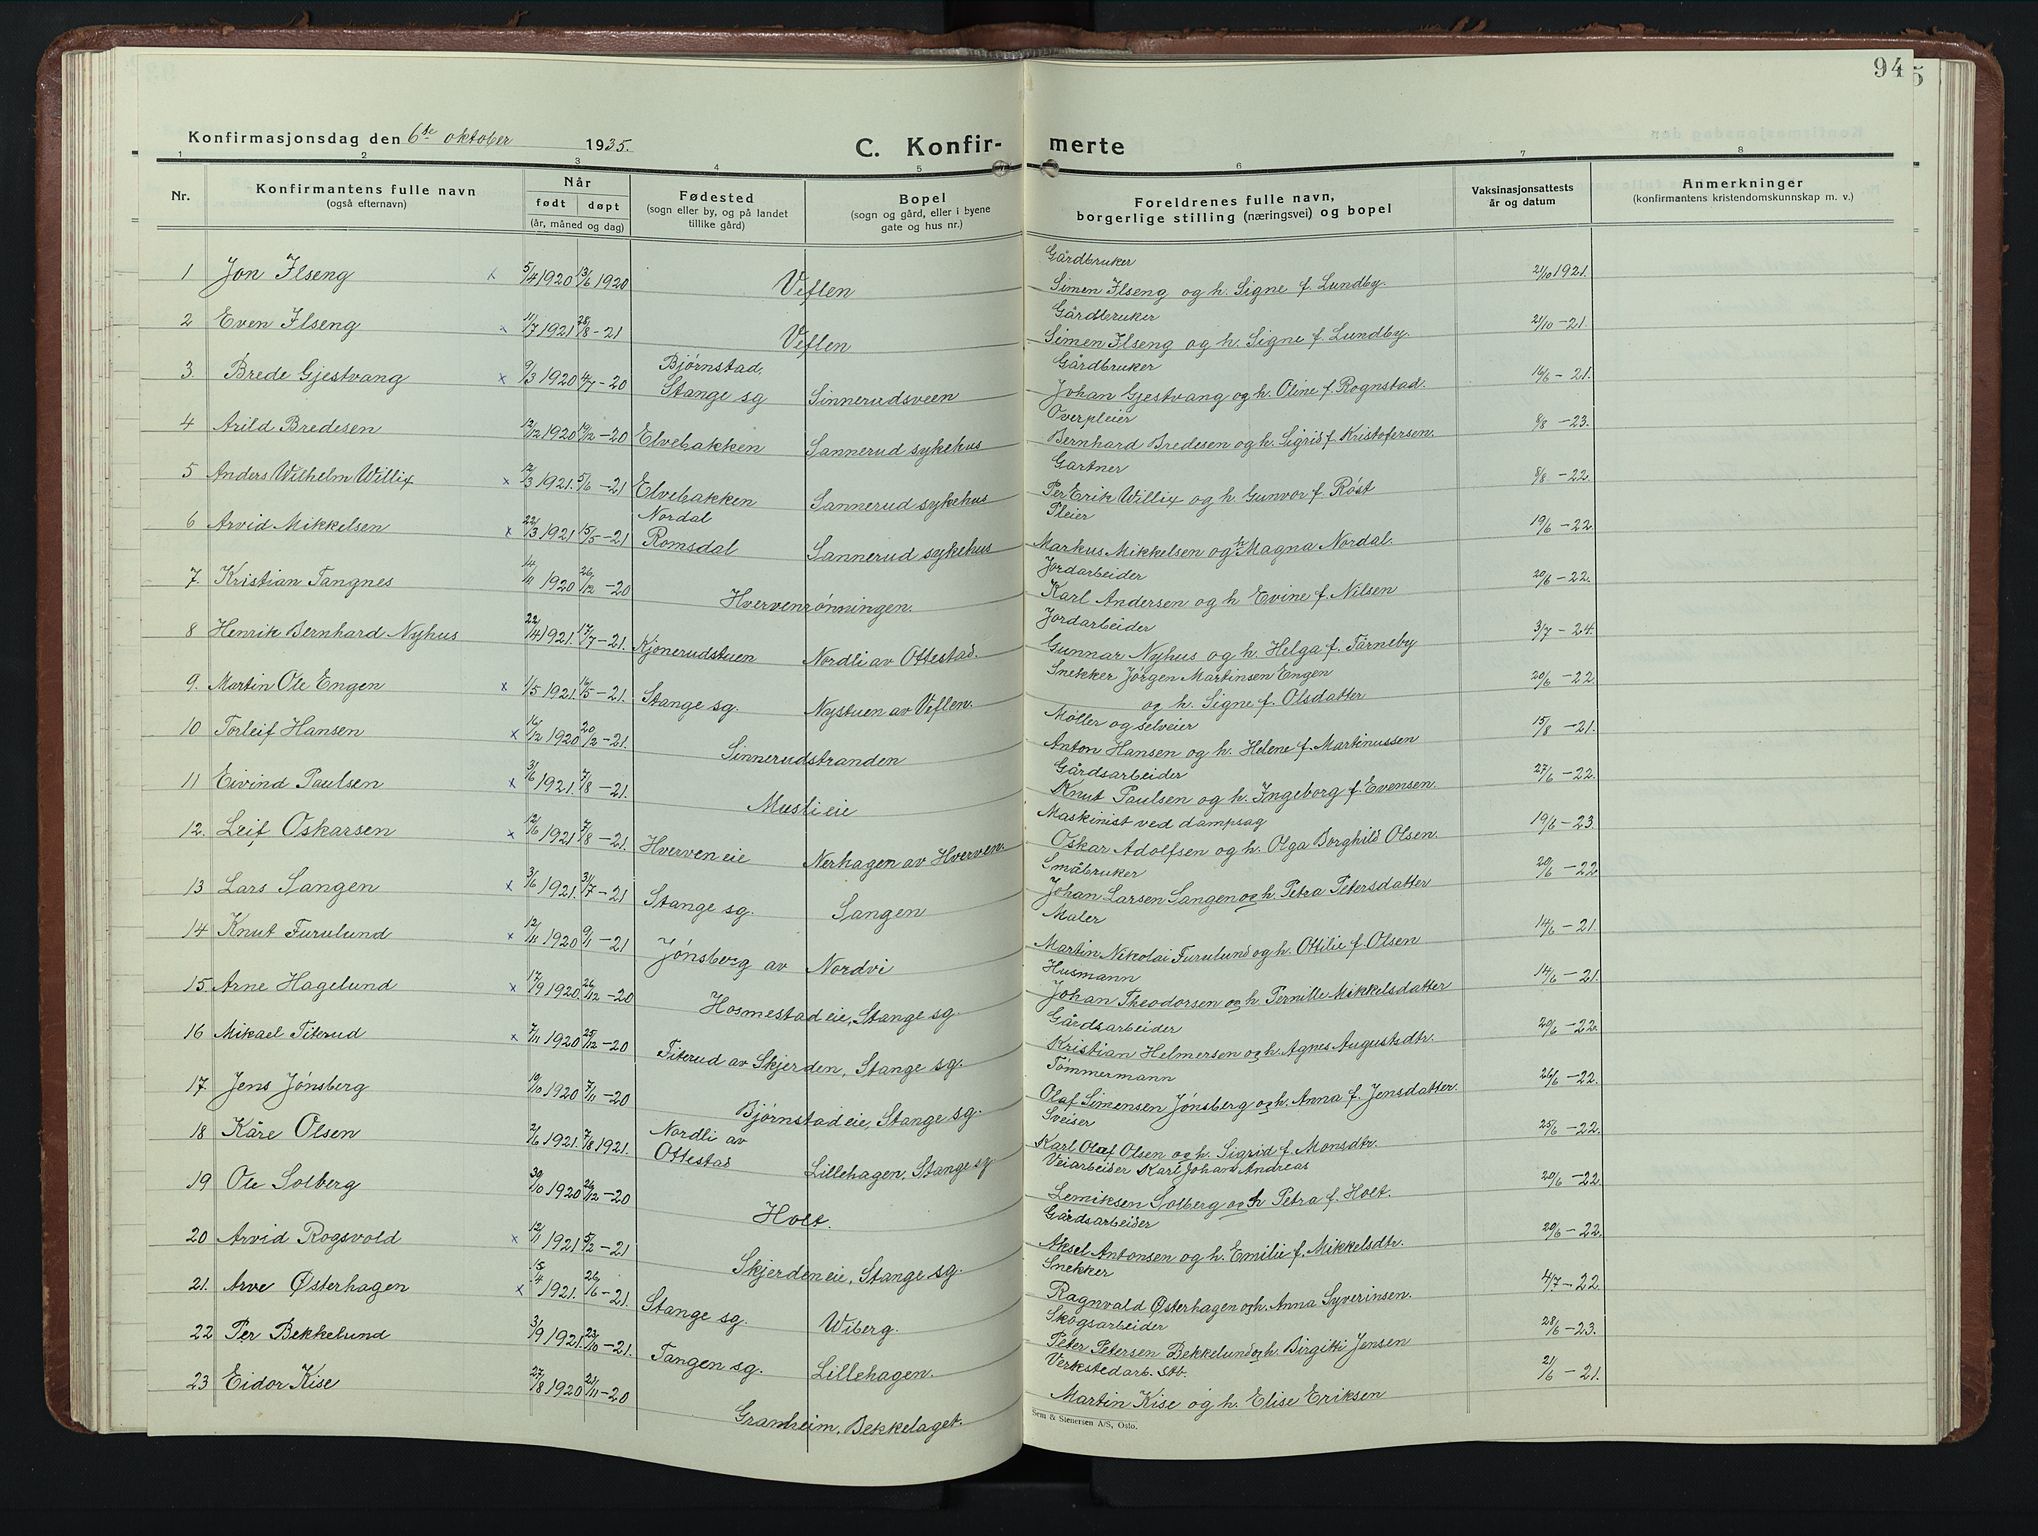 94
Konfirmasjonsdag den 6te oktober 1935.
C. Konfirmerte
1 2 3 4 5 6 7 8
Nr.
Konfirmantens fulle navn
(også efternavn)
Når
født døpt
(år, måned og dag)
Fødested
(sogn eller by, og på landet
tillike gård)
Bopel
(sogn og gård, eller i byene
gate og hus nr.)
Foreldrenes fulle navn,
borgerlige stilling (næringsvei) og bopel
Vaksinasjonsattests
år og datum
Anmerkninger
(konfirmantens kristendomskunnskap m. v.)
Gårdbruker
1 Jon Ilseng x 5/4 1920 13/6 1920 Veflen Simen Ilseng og h. Signe f. Lundby. 21/10 1921.
Gårdbruker
2 Even Ilseng x 11/7 1921 28/8-21 Veflen Simen Ilseng og h. Signe f. Lundby. 21/10-21.
Bjørnstad, Gårdbruker
3. Brede Gjestvang x 9/3 1920 4/7-20 Stange sg Sinnerudsveen Johan Gjestvang og h. Oline f. Rognstad. 16/6-21.
Overpleier
4 Arild Bredesen 12/12 1920 -20 Elvebakken Sannerud sykehus Bernhard Bredesen og h. Sigrid f. Kristofersen. 8/8-23.
Gartner
5 Anders Wilhelm Willix x 12/3 1921. 5/6-21 Elvebakken Sannerud sykehus Per Erik Willix og h. Gunvor f. Röst 8/8-22.
Nordal Pleier
6 Arvid Mikkelsen x 22/3 1921 15/5-21 Romsdal Sannerud sykehus Markus Mikkelsen og h. Magna Nordal. 19/6-22.
Jordarbeider
7. Kristian Tangnes 14/11 1920 26/12-20 Hvervenrønningen. Karl Andersen og h Evine f. Nilsen 20/6-22.
Jordarbeider
8 Henrik Bernhard Nyhus 22/4 1921. 17/7-21. Kjonerudstuen Nordli av Ottestad. Gunnar Nyhus og h. Helga f. Tärneby 3/7-24.
Snekker Jørgen Martinsen Engen
9. Martin Ole Engen x 1/5 1921. 16/5-21. Stange sg. Nystuen av Veflen. og h. Signe f. Olsdatter 20/6-22.
Møller og selveier
10 Torleif Hansen x 16/12 1920 20/2-21. Sinnerudstranden Anton Hansen og h. Helene f. Martinussen 15/8-21.
Gårdsarbeider
11 Eivind Paulsen x 3/6 1921. 7/8-21. Musli eie Knut Paulsen og h. Ingeborg f. Evensen. 27/6-22.
Maskinist ved dampsag
12. Leif Oskarsen x 12/6 1921 7/8-21. Hverven eie Nerhagen av Hverven. Oskar Adolfsen og h. Olga Borghild Olsen. 19/6-23.
Småbruker
13 Lars Sangen x 3/6 1921. 31/7-21 Stange sg. Sangen Johan Larsen Sangen og h. Petra Petersdatter 20/6-22
Maler
14 Knut Furulund x 12/11 1920 9/11-21 Jønsberg av Nordvi Martin Nikolai Furulund og h. Ottilie f. Olsen 14/6-21.
Husmann
15. Arne Hagelund x 17/9 1920 26/12-20 Hosmestad eie, Stange sg. Johan Theodorsen og h. Pernille Mikkelsdatter 14/6-21.
Gårdsarbeider
16 Mikael Titerud x 7/11 1920 25/12-20 Titerud av Skjerden, Stange sg. Kristian Helmersen og h. Agnes Augustsdtr. 20/6-22.
Tömmermann
17. Jens Jönsberg 10/10 1920 7/11-20 Bjørnstad eie, Stange sg. Olaf Simensen Jønsberg og h. Anna f. Jensdatter. 26/6-22.
Nordli av Sveiser
18 Kåre Olsen 2/6 1921. 7/8 1921. Ottestad Lillehagen, Stange sg. Karl Olaf Olsen og h. Sigrid f. Monsdtr. 25/6-22.
Veiarbeider Karl Johan Andreas
19 Ole Solberg 30/10 1920 26/12-20 Holt. Lemiksen Solberg og h Petra f. Holt. 20/6-22.
Gårdsarbeider
20 Arvid Rogsvold x 12/11 1921 5/2-21 Skjerden eie, Stange sg. Aksel Antonsen og h. Emilie f. Mikkelsdtr. 20/6-22.
Snekker
21. Arve Østerhagen x 15/4 1921. 26/6-21. Stange sg. Wiberg. Ragnvald Østerhagen og h. Anna Syverinsen. 4/7-22.
Skogsarbeider
22 Per Bekkelund 3/9 1921. 23/10-21. Tangen sg. Lillehagen. Peter Petersen Bekkelund og h. Birgitti Jensen 28/6-23.
Verkstedarb. Stb.
23 Eidor Kise 27/8 1920 21/11-20 Granheim, Bekkelaget. Martin Kise og h. Elise Eriksen 21/6-21.
Sem & Stenersen A/S, Oslo.